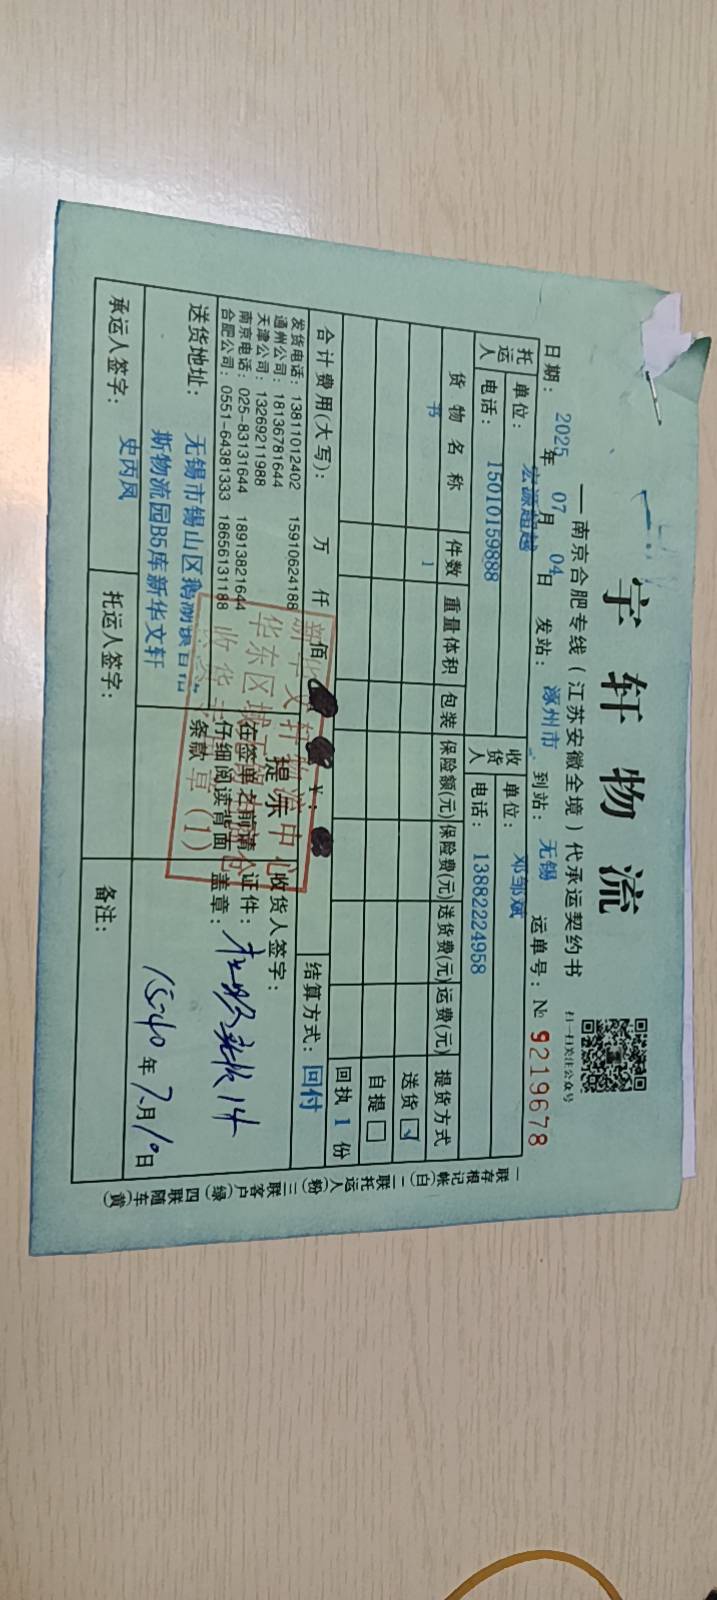 宇轩物流
——南京合肥专线（江苏安徽全境）代承运契约书
扫一扫关注公众号
日期：2025年07月04日 发站：涿州市 到站：无锡 运单号：№ 9219678
托运人 单位：宏源超越 收货人 单位：邓邹斌
电话：15010159888 电话：13882224958
货物名称 件数 重量体积 包装 保险额(元) 保险费(元) 送货费(元) 运费(元) 提货方式
书 1 送货 ☑
自提 □
回执 1 份
合计费用(大写)： 万 仟 佰 ¥： 结算方式：回付
发货电话：13811012402 15910624188
通州公司：18136781644
天津公司：13269211988
南京电话：025-83131644 18913821644
合肥公司：0551-64381333 18656131188
提示
在签单名前请
仔细阅读背面
条款
收货人签字：
证件：
盖章：
收1件
新华文轩物流中心
华东区域
收货专用章（1）
送货地址：无锡市锡山区鹅湖镇
斯物流园B5库新华文轩
15:40 年7月10日
承运人签字：史丙凤 托运人签字： 备注：
一联存根记帐(白)二联托运人(粉)三联客户(绿)四联随车(黄)